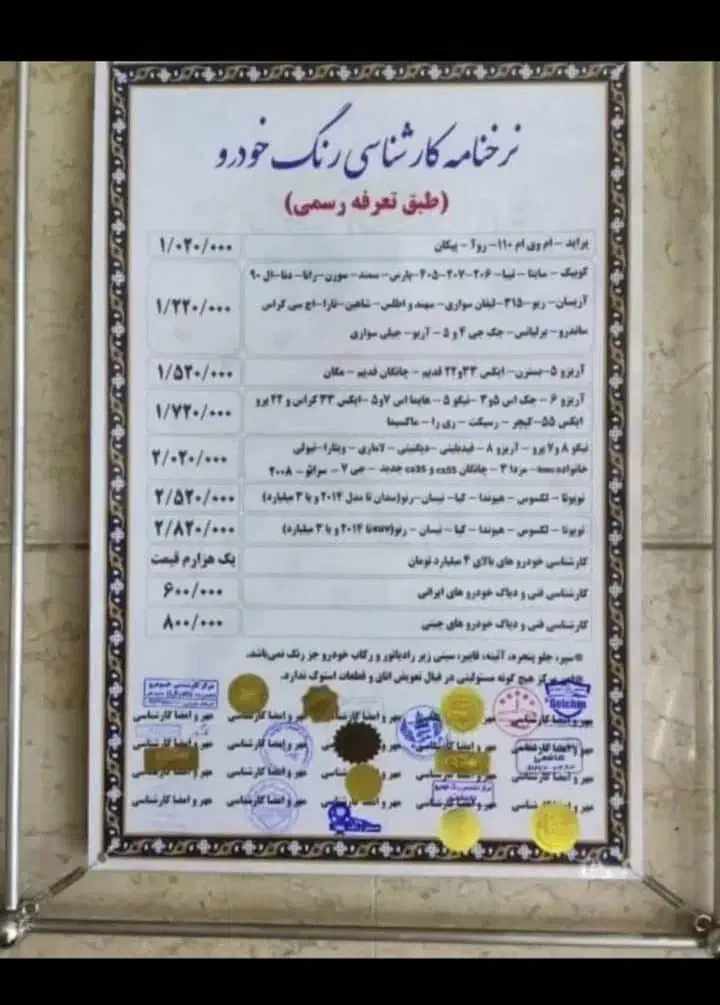 نرخنامه کارشناسی رنگ خودرو
(طبق تعرفه رسمی)
پراید – ام وی ام ۱۱۰ – روآ – پیکان ۱/۰۲۰/۰۰۰
کوییک – ساینا – تیبا – ۲۰۶ – ۲۰۷ – ۴۰۵ – پارس – سمند – سورن – رانا – دنا – ال ۹۰
آریسان – ریو – ۳۱۵ – لیفان سواری – سهند و اطلس – شاهین – تارا – اچ سی کراس ۱/۲۲۰/۰۰۰
ساندرو – برلیانس – جک جی ۴ و ۵ – آریو – جیلی سواری
آریزو ۵ – بسترن – ایکس ۳۳و۲۲ قدیم – چانگان قدیم – مگان ۱/۵۲۰/۰۰۰
آریزو ۶ – جک اس ۵و۳ – تیگو ۵ – هایما اس ۷و۵ – ایکس ۳۳ کراس و ۲۲ پرو
ایکس ۵۵ – کپچر – رسپکت – ری را – ماکسیما ۱/۷۲۰/۰۰۰
تیگو ۸ و۷ پرو – آریزو ۸ – فیدلیتی – دیگنیتی – لاماری – ویتارا – تیولی
خانواده kmc – مزدا ۳ – چانگان cs55 و cs35 جدید – جی ۷ – سراتو – ۲۰۰۸ ۲/۰۲۰/۰۰۰
تویوتا – لکسوس – هیوندا – کیا – نیسان – رنو(سدان تا مدل ۲۰۱۴ و یا ۳ میلیارد) ۲/۵۲۰/۰۰۰
تویوتا – لکسوس – هیوندا – کیا – نیسان – رنو(suvتا ۲۰۱۴ و یا ۳ میلیارد) ۲/۸۲۰/۰۰۰
کارشناسی خودرو های بالای ۴ میلیارد تومان یک هزارم قیمت
کارشناسی فنی و دیاگ خودرو های ایرانی ۶۰۰/۰۰۰
کارشناسی فنی و دیاگ خودرو های چینی ۸۰۰/۰۰۰
*سپر، جلو پنجره، آئینه، فایبر، سینی زیر رادیاتور و رکاب خودرو جز رنگ نمی‌باشد.
مرکز هیچ گونه مسئولیتی در قبال تعویض اتاق و قطعات استوک ندارد.
Golchin
مهر و امضا کارشناسی مهر و امضا کارشناسی مهر و امضا کارشناسی مهر و امضا کارشناسی مهر و امضا کارشناسی
مهر و امضا کارشناسی مهر و امضا کارشناسی مهر و امضا کارشناسی مهر و امضا کارشناسی
مهر و امضا کارشناسی مهر و امضا کارشناسی مهر و امضا کارشناسی مهر و امضا کارشناسی
مهر و امضا کارشناسی مهر و امضا کارشناسی مهر و امضا مهر و امضا کارشناسی مهر و امضا کارشناسی